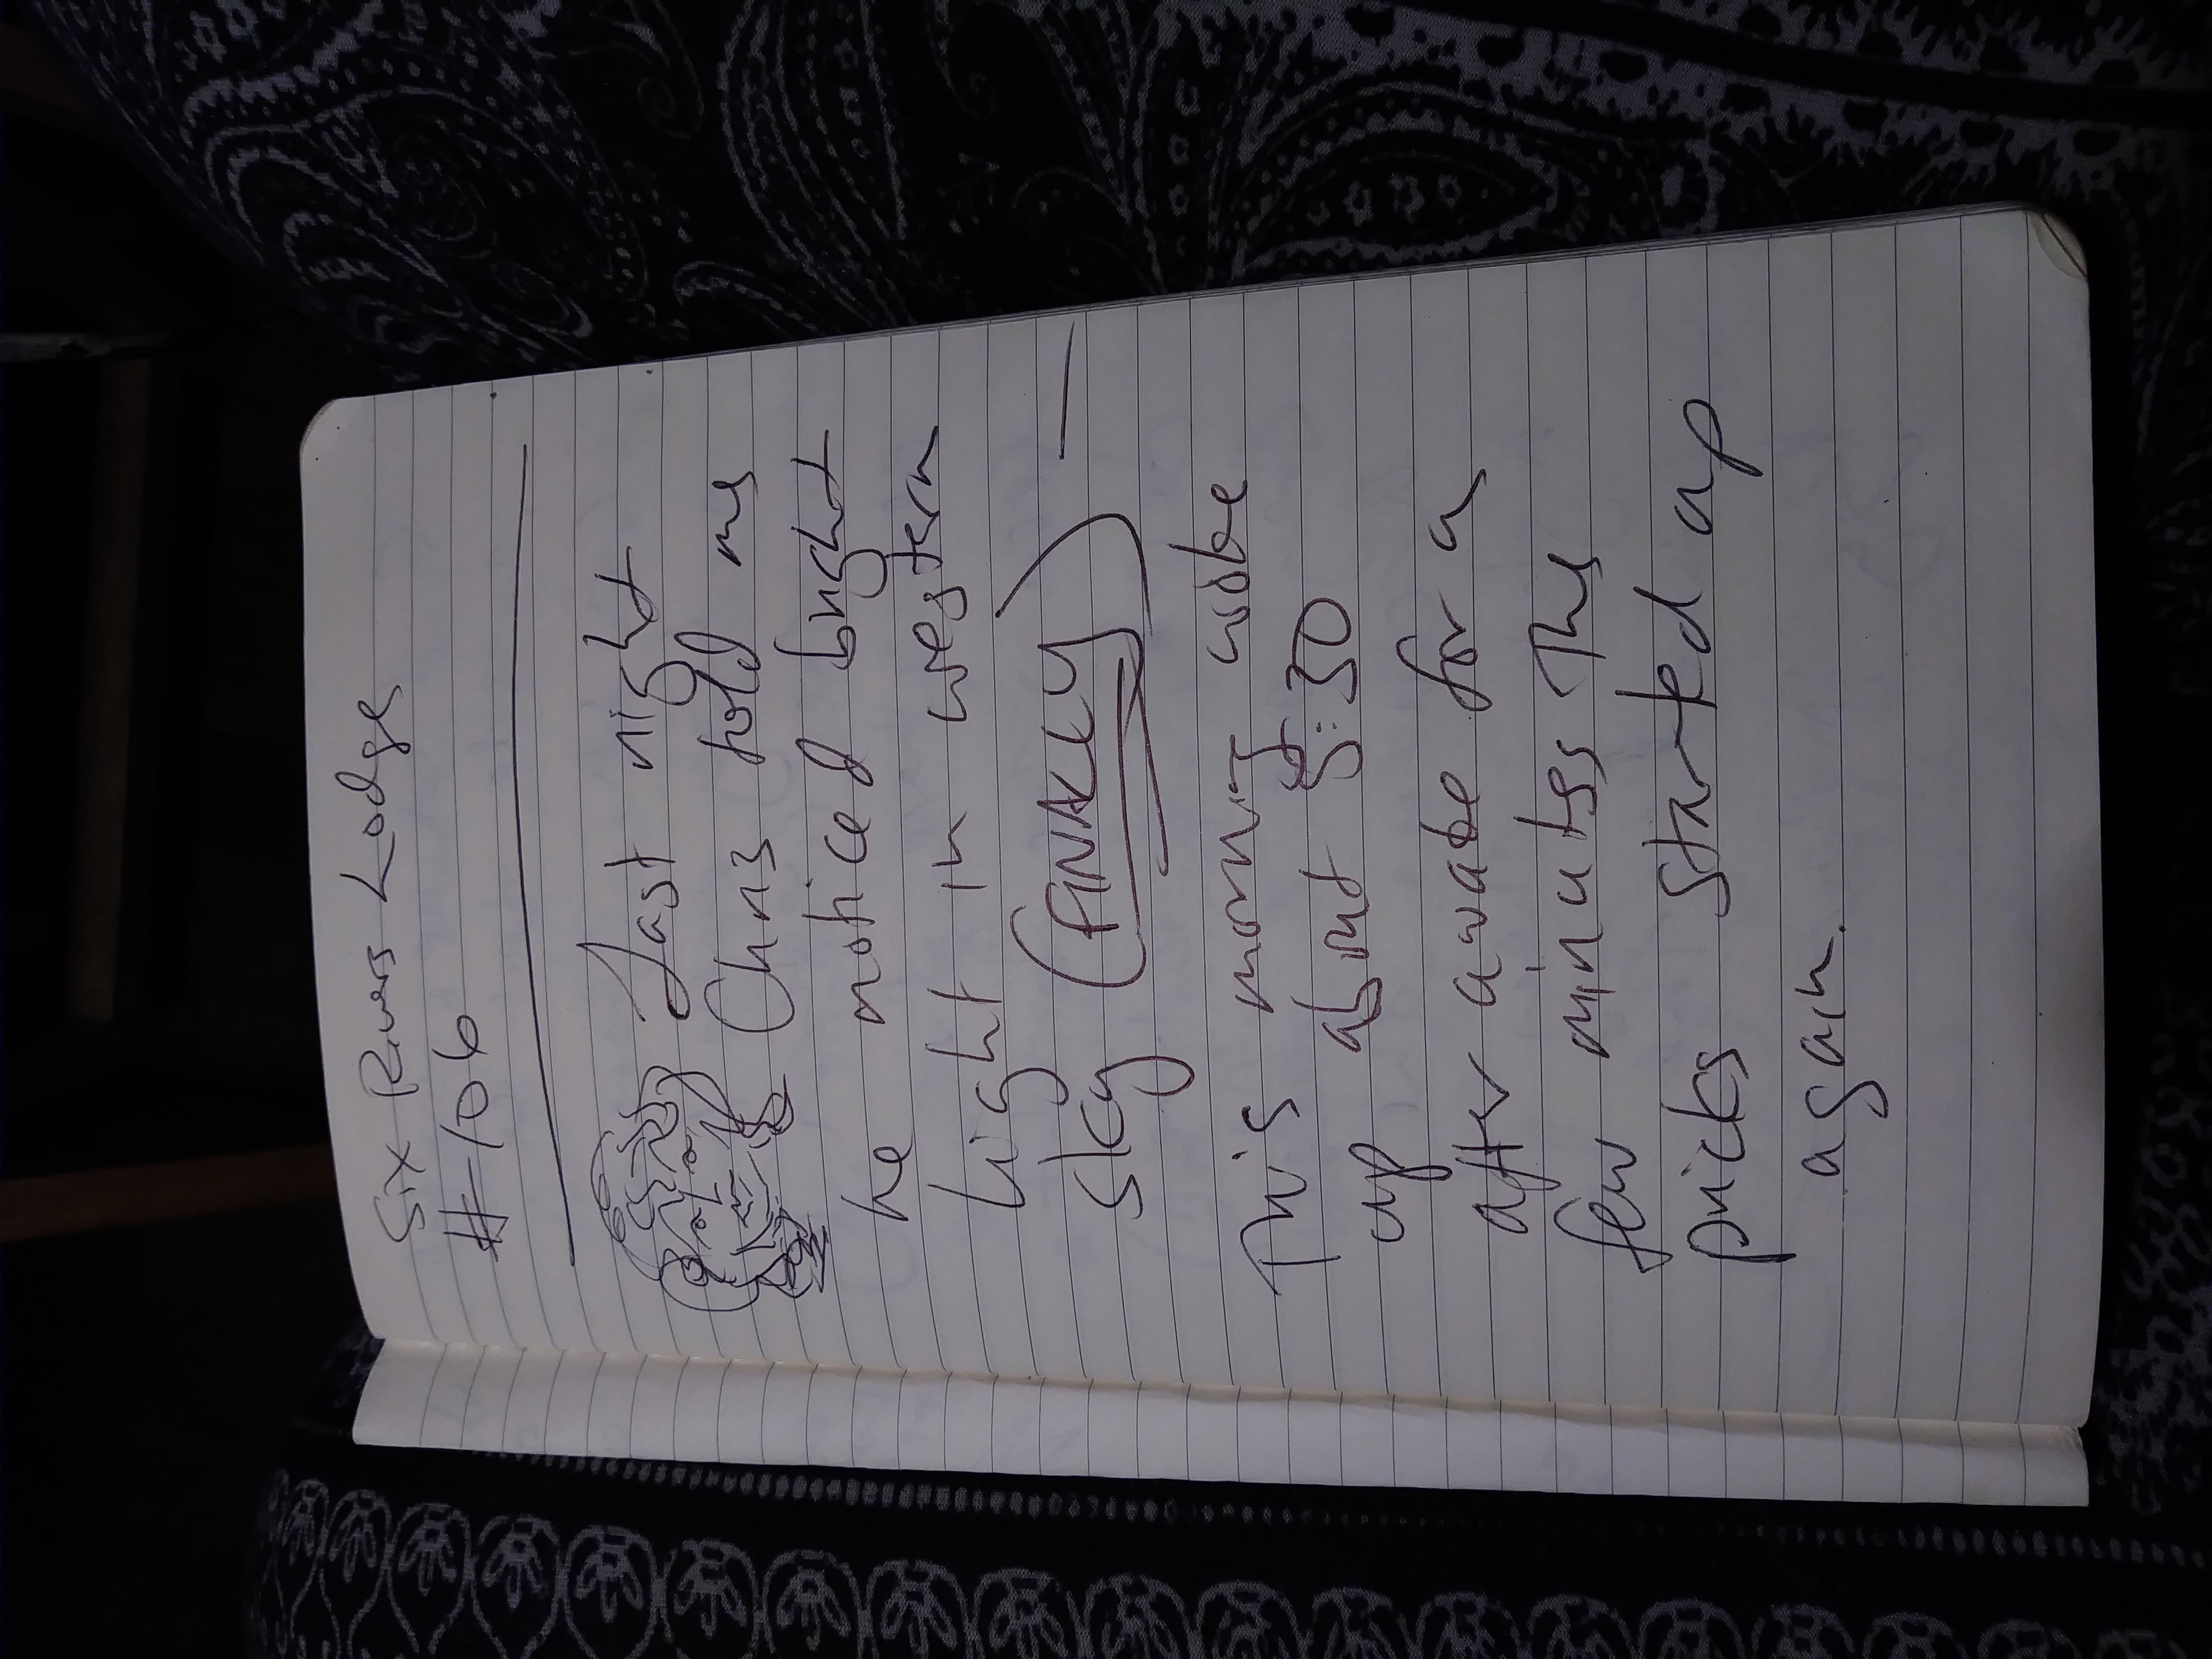 Six Rivers Lodge
#106
Last night
Chris told me
he noticed bright
light in western
sky (FINALLY) —
This morning woke
up about 5:30
after awake for a
few minutes The
pricks started up
again.